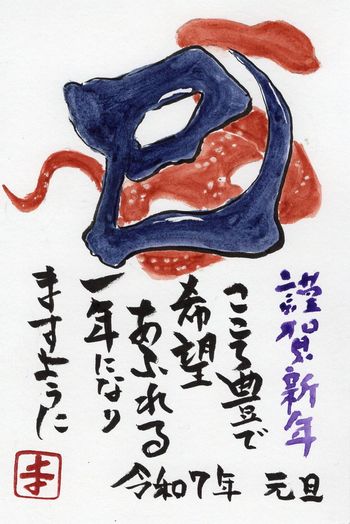 巳
謹賀新年
こころ豊で
希望
あふれる
一年になり
ますように
令和7年 元旦